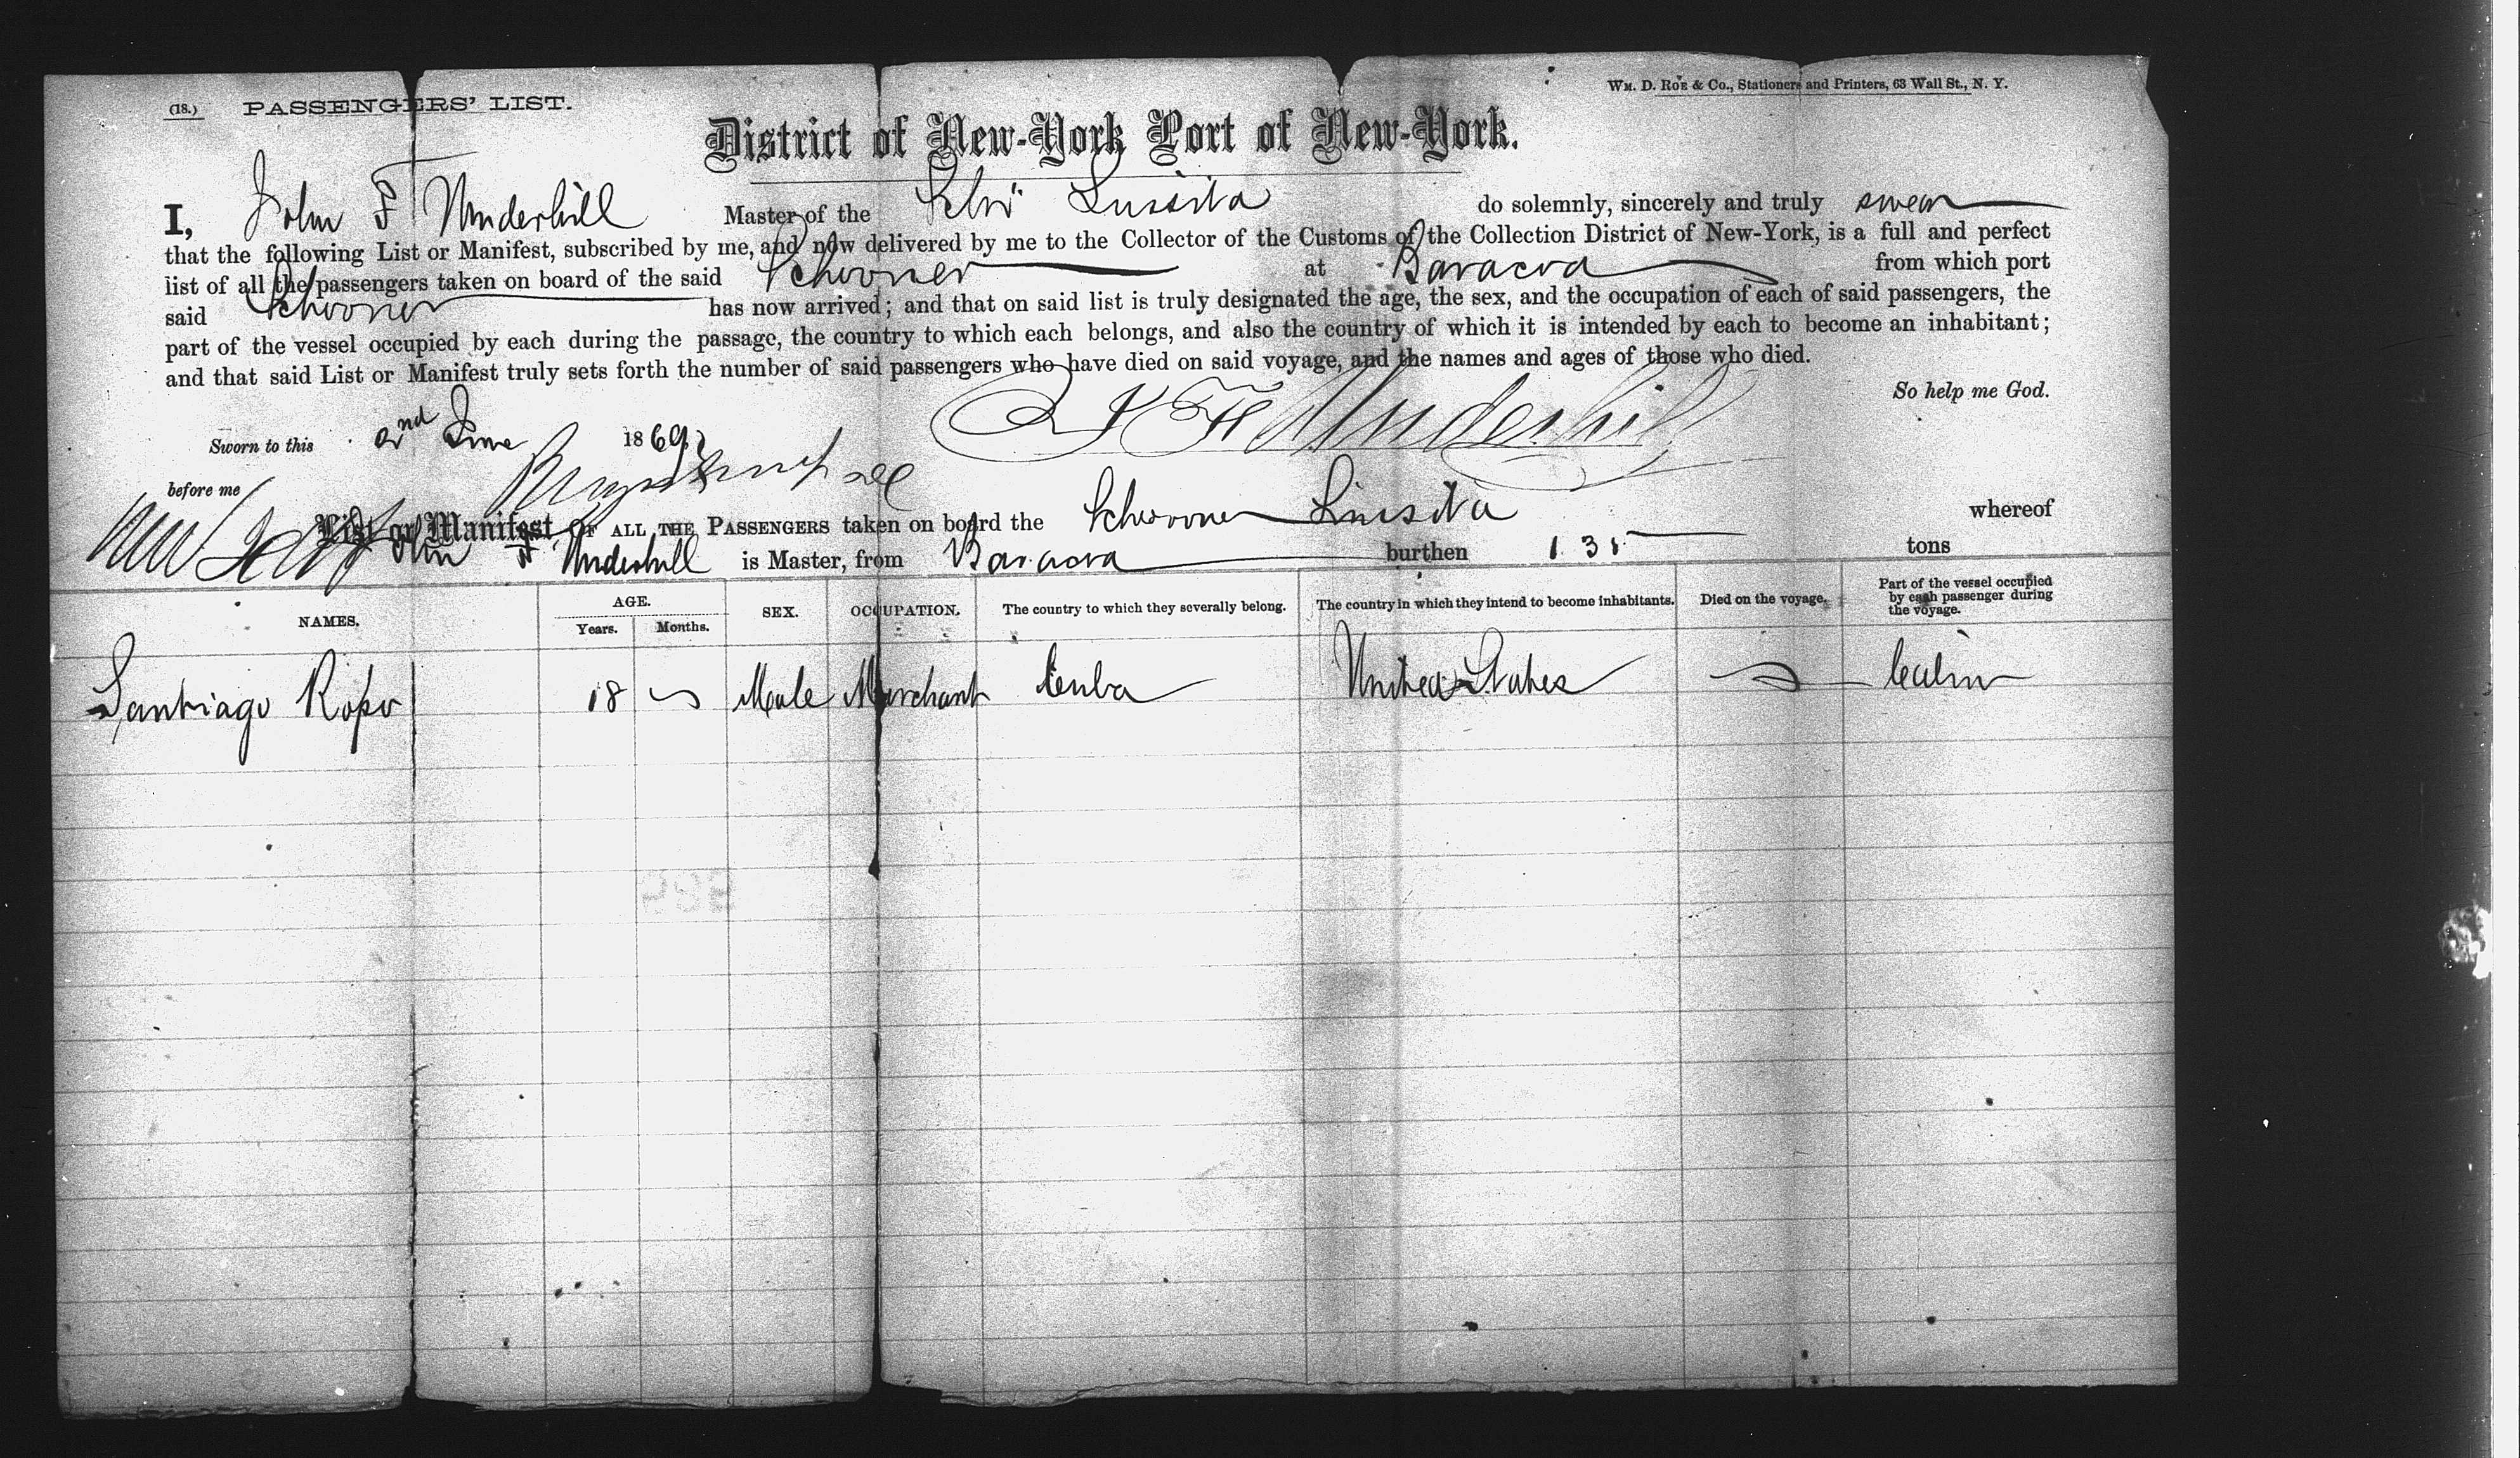 (18.) PASSENGERS' LIST.
WM. D. ROE & CO., Stationers and Printers, 63 Wall St., N. Y.
District of New-York Port of New-York.
I, John F Underhill Master of the Schr Luisita do solemnly, sincerely and truly swear
that the following List or Manifest, subscribed by me, and now delivered by me to the Collector of the Customs of the Collection District of New-York, is a full and perfect
list of all the passengers taken on board of the said Schooner at Baracoa from which port
said Schooner has now arrived; and that on said list is truly designated the age, the sex, and the occupation of each of said passengers, the
part of the vessel occupied by each during the passage, the country to which each belongs, and also the country of which it is intended by each to become an inhabitant;
and that said List or Manifest truly sets forth the number of said passengers who have died on said voyage, and the names and ages of those who died.
So help me God.
Sworn to this 2nd June 1869 J F Underhill
before me
List or Manifest OF ALL THE PASSENGERS taken on board the Schooner Luisita whereof
John F Underhill is Master, from Baracoa burthen 135 tons
NAMES. AGE. Years. Months. SEX. OCCUPATION. The country to which they severally belong. The country in which they intend to become inhabitants. Died on the voyage. Part of the vessel occupied by each passenger during the voyage.
Santiago Ropo 18 Male Merchant Cuba United States Cabin